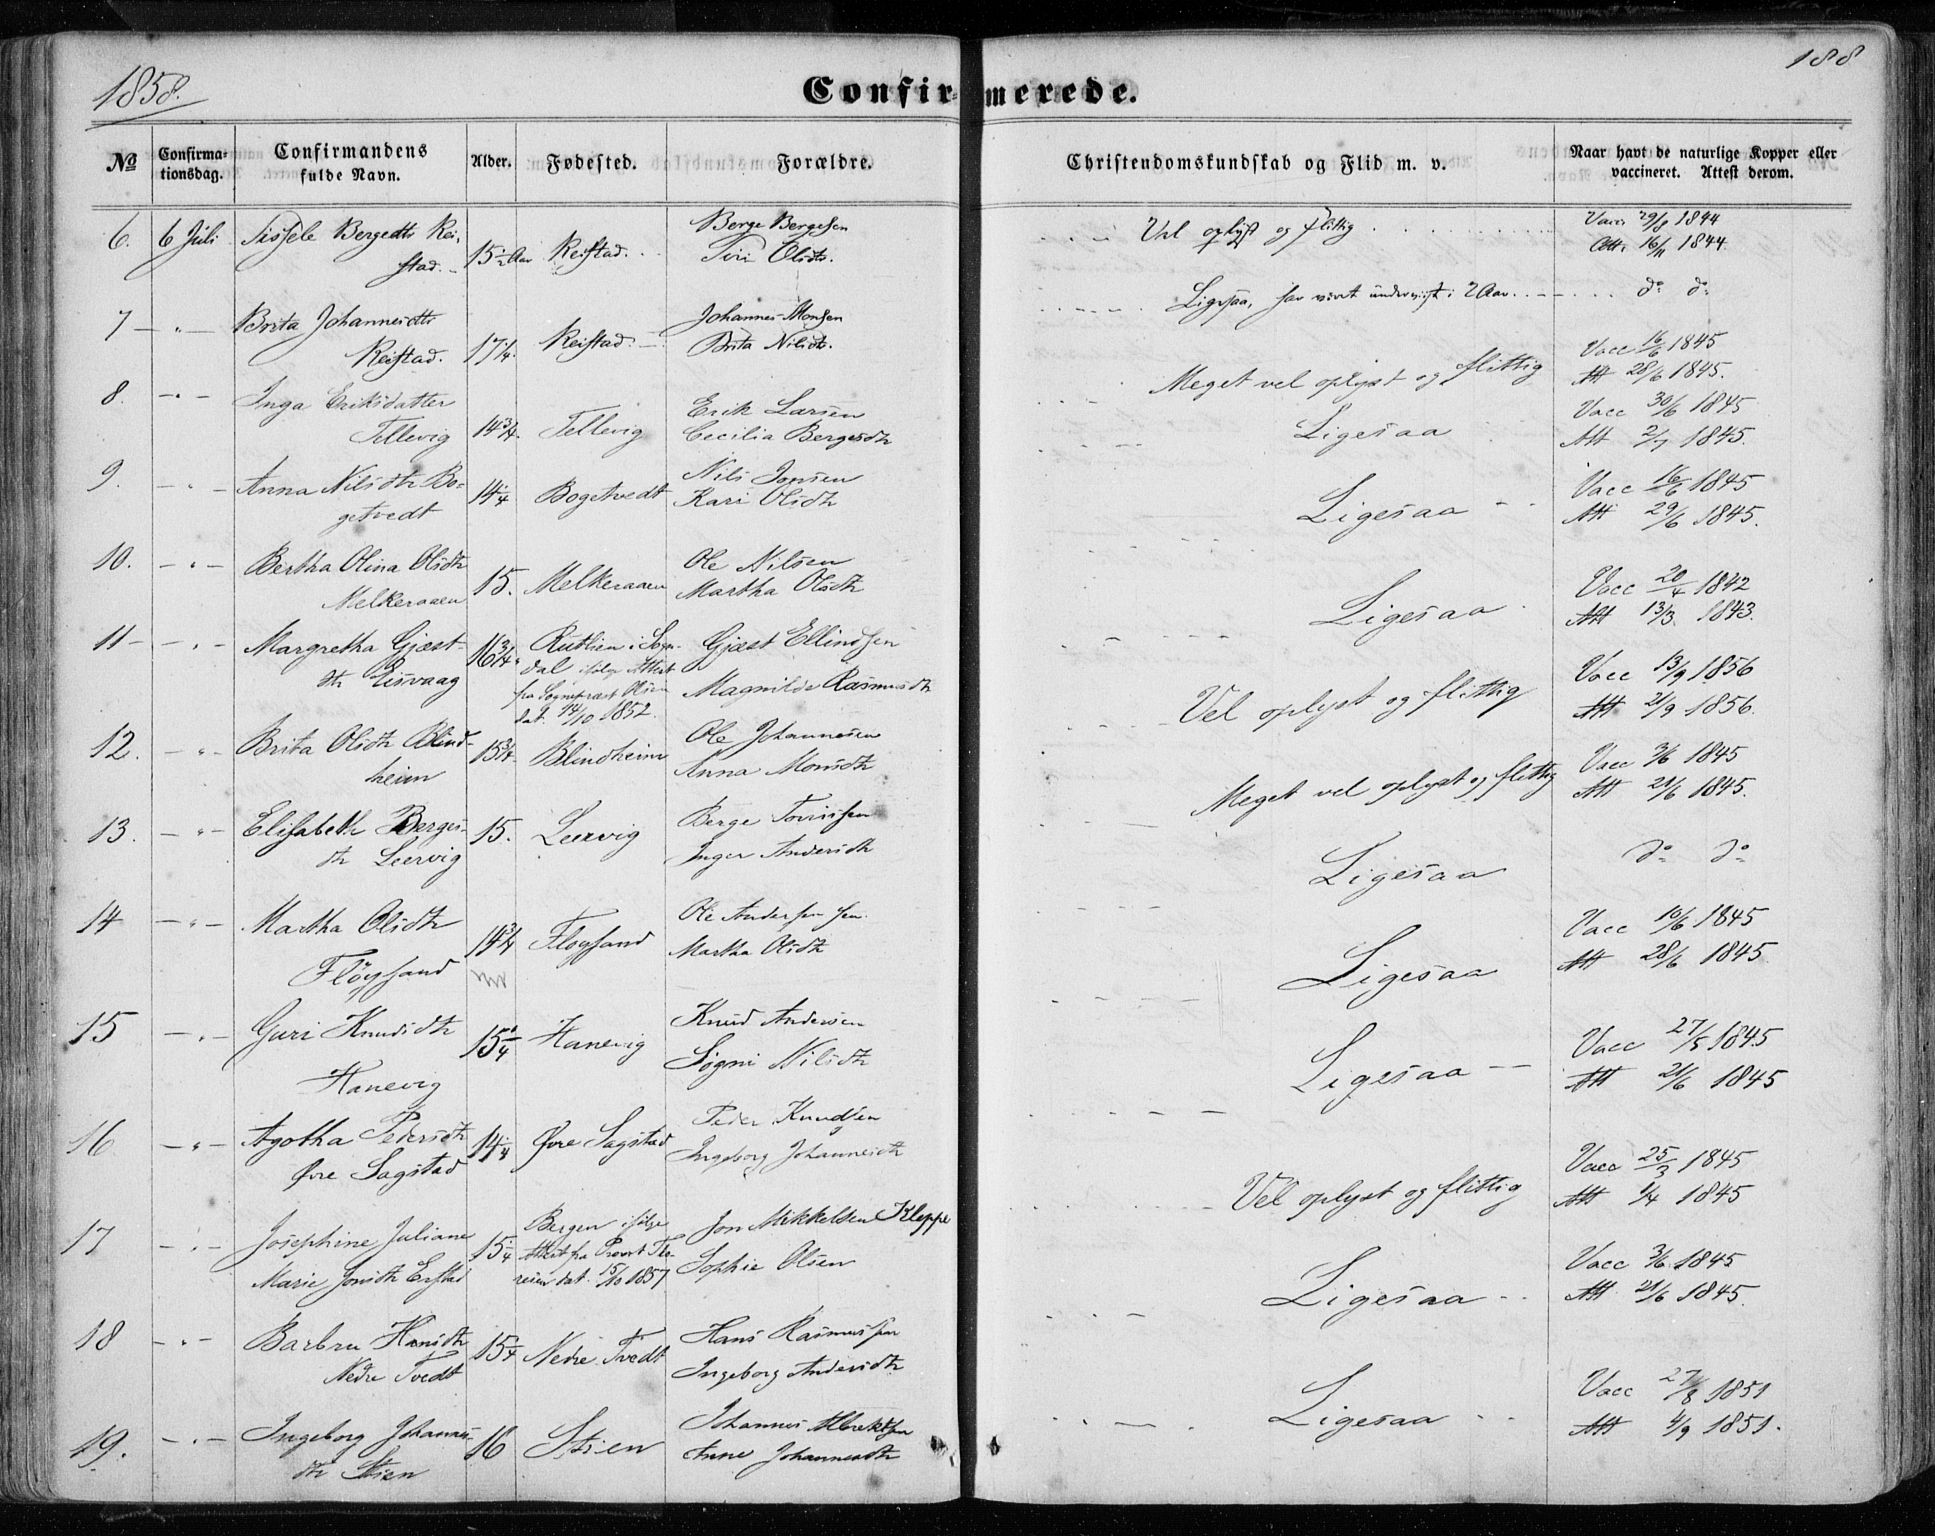 1858.
188
Confirmerede.
No
Confirmationsdag.
Confirmandens fulde Navn.
Alder.
Fødested.
Forældre.
Christendomskundskab og Flid m. v.
Naar havt de naturlige Kopper eller vaccineret. Attest derom.
6. 6 Juli Sissele Bergesdtr Rei- 15½ Aar Reistad. Berge Bergesen Vel oplyst og flittig Vacc 29/8 1844
stad. Siri Olsdtr. Att. 16/11 1844.
7 — " — Brita Johannesdtr 17¼. Reistad. Johannes Monsen Ligesaa, har været underviist i 2 Aar. do do
Reistad. Brita Nilsdtr.
8. — " — Inga Eriksdatter 14¾. Tellevig Erik Larsen Meget vel oplyst og flittig Vacc 16/6 1845
Tellevig Cecilia Bergesdtr Att 28/6 1845.
9. — " — Anna Nilsdtr Bo- 14¼ Bogetvedt Nils Jonsen Ligesaa Vacc 30/6 1845
getvedt Kari Olsdtr Att 2/7 1845.
10. — " — Bertha Olina Olsdtr 15. Melkeraaen Ole Nilsen Ligesaa Vacc 16/6 1845
Melkeraaen Martha Olsdtr Att 29/6 1845.
11 — " — Margretha Gjæst- 16¾ Rutlien i Sogn- Gjæst Ellindsen Ligesaa Vacc 20/4 1842
dtr Eisvaag dal ifølge Attest Magnilde Rasmusdtr Att 13/3 1843.
fra Sognepræst Olsen
dat. 14/10 1852.
12. — " — Brita Olsdtr Blind- 15¾. Blindheim Ole Johannesen Vel oplyst og flittig Vacc 13/9 1856
heim Anna Monsdtr Att 21/9 1856.
13. — " — Elisabeth Berges- 15. Leervig Berge Torrissen Meget vel oplyst og flittig Vacc 3/6 1845
dtr Leervig Inger Andersdtr Att 21/6 1845.
14 — " — Martha Olsdtr 14¾ Fløysand Ole Andersen Ligesaa do do
Fløysand Martha Olsdtr
15 — " — Guri Knudsdtr 15¼ Hanevig Knud Andersen Ligesaa Vacc 10/6 1845
Hanevig Signi Nilsdtr Att 28/6 1845
16 — " — Agotha Pedersdtr 14¼ Øvre Sagstad Peder Knudsen Ligesaa Vacc 27/5 1845
Øvre Sagstad Ingeborg Johannesdtr Att 21/6 1845
17 — " — Josephine Juliane 15¼ Bergen ifølge Jon Mikkelsen Kleppe Vel oplyst og flittig Vacc 25/3 1845
Marie Jonsdtr Erstad Attest fra Provst Sophie Olsen Att 1/4 1845
dat. 15/10 1857
18 — " — Barbru Hansdtr 15¼ Nedre Tvedt Hans Rasmussen Ligesaa Vacc 3/6 1845
Nedre Tvedt Ingeborg Andersdtr Att 21/6 1845.
19. — " — Ingeborg Johannes- 16 Stien Johannes Albrektsen Ligesaa Vacc 27/8 1851
dtr Stien Anne Johannesdtr Att 4/9 1851.